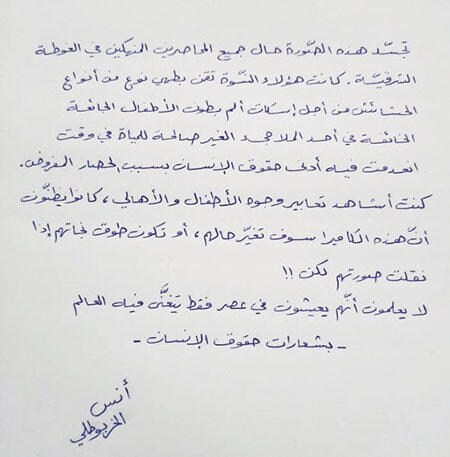 تجسّد هذه الصّورة حال جميع المحاصرين المنهكين في الغوطة
الشرقيّة. كانت هؤلاء النّسوة تقن بطهي نوع من أنواع
الحشائش من أجل إسكات ألم بطون الأطفال الجائعة
الخائفة في أحد الملاجىء الغير صالحة للحياة في وقت
انعدمت فيه أدنى حقوق الإنسان بسبب الحصار المفروض.
كنت أشاهد تعابير وجوه الأطفال والأهالي، كانوا يظنّون
أنّ هذه الكاميرا سوف تغيّر حالهم، أو تكون طوق نجاتهم إذا
نقلت صورتهم لكن !!
لا يعلمون أنّهم يعيشون في عصر فقط يتغنَّى فيه العالم
- بشعارات حقوق الإنسان -
أنس
الخربوطلي